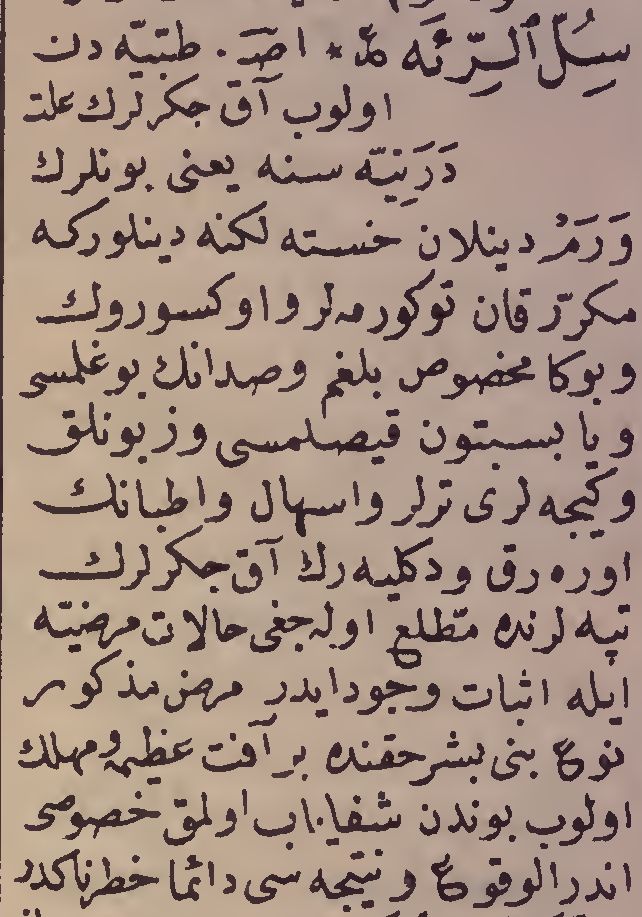 سِلُّ ٱلرِّئَه ع * اصـ. طبّيّه دن
اولوب آق جكرلرك علت
دَرَنِيّه سنه يعنى بونلرك
وَرَمْ دينلان خسته لكنه دينلوركه
مكرّر قان توكورمه لر و اوكسورك
و بوكا مخصوص بلغم و صدانك بوغلمسى
و يا بسبتون قيصلمسى و زبونلق
و كيجه لرى ترلر و اسهال و اطبانك
اوره رق و دكليه رك آق جكرلرك
تپه لرنده مطّلع اوله جغى حالات مرضيّه
ايله اثبات وجود ايدر مرض مذكور
نوع بنى بشر حقنده بر آفت عظيمه و مهلك
اولوب بوندن شفاياب اولمق خصوصى
اندر الوقوع و نتيجه سى دائما خطرناكدر